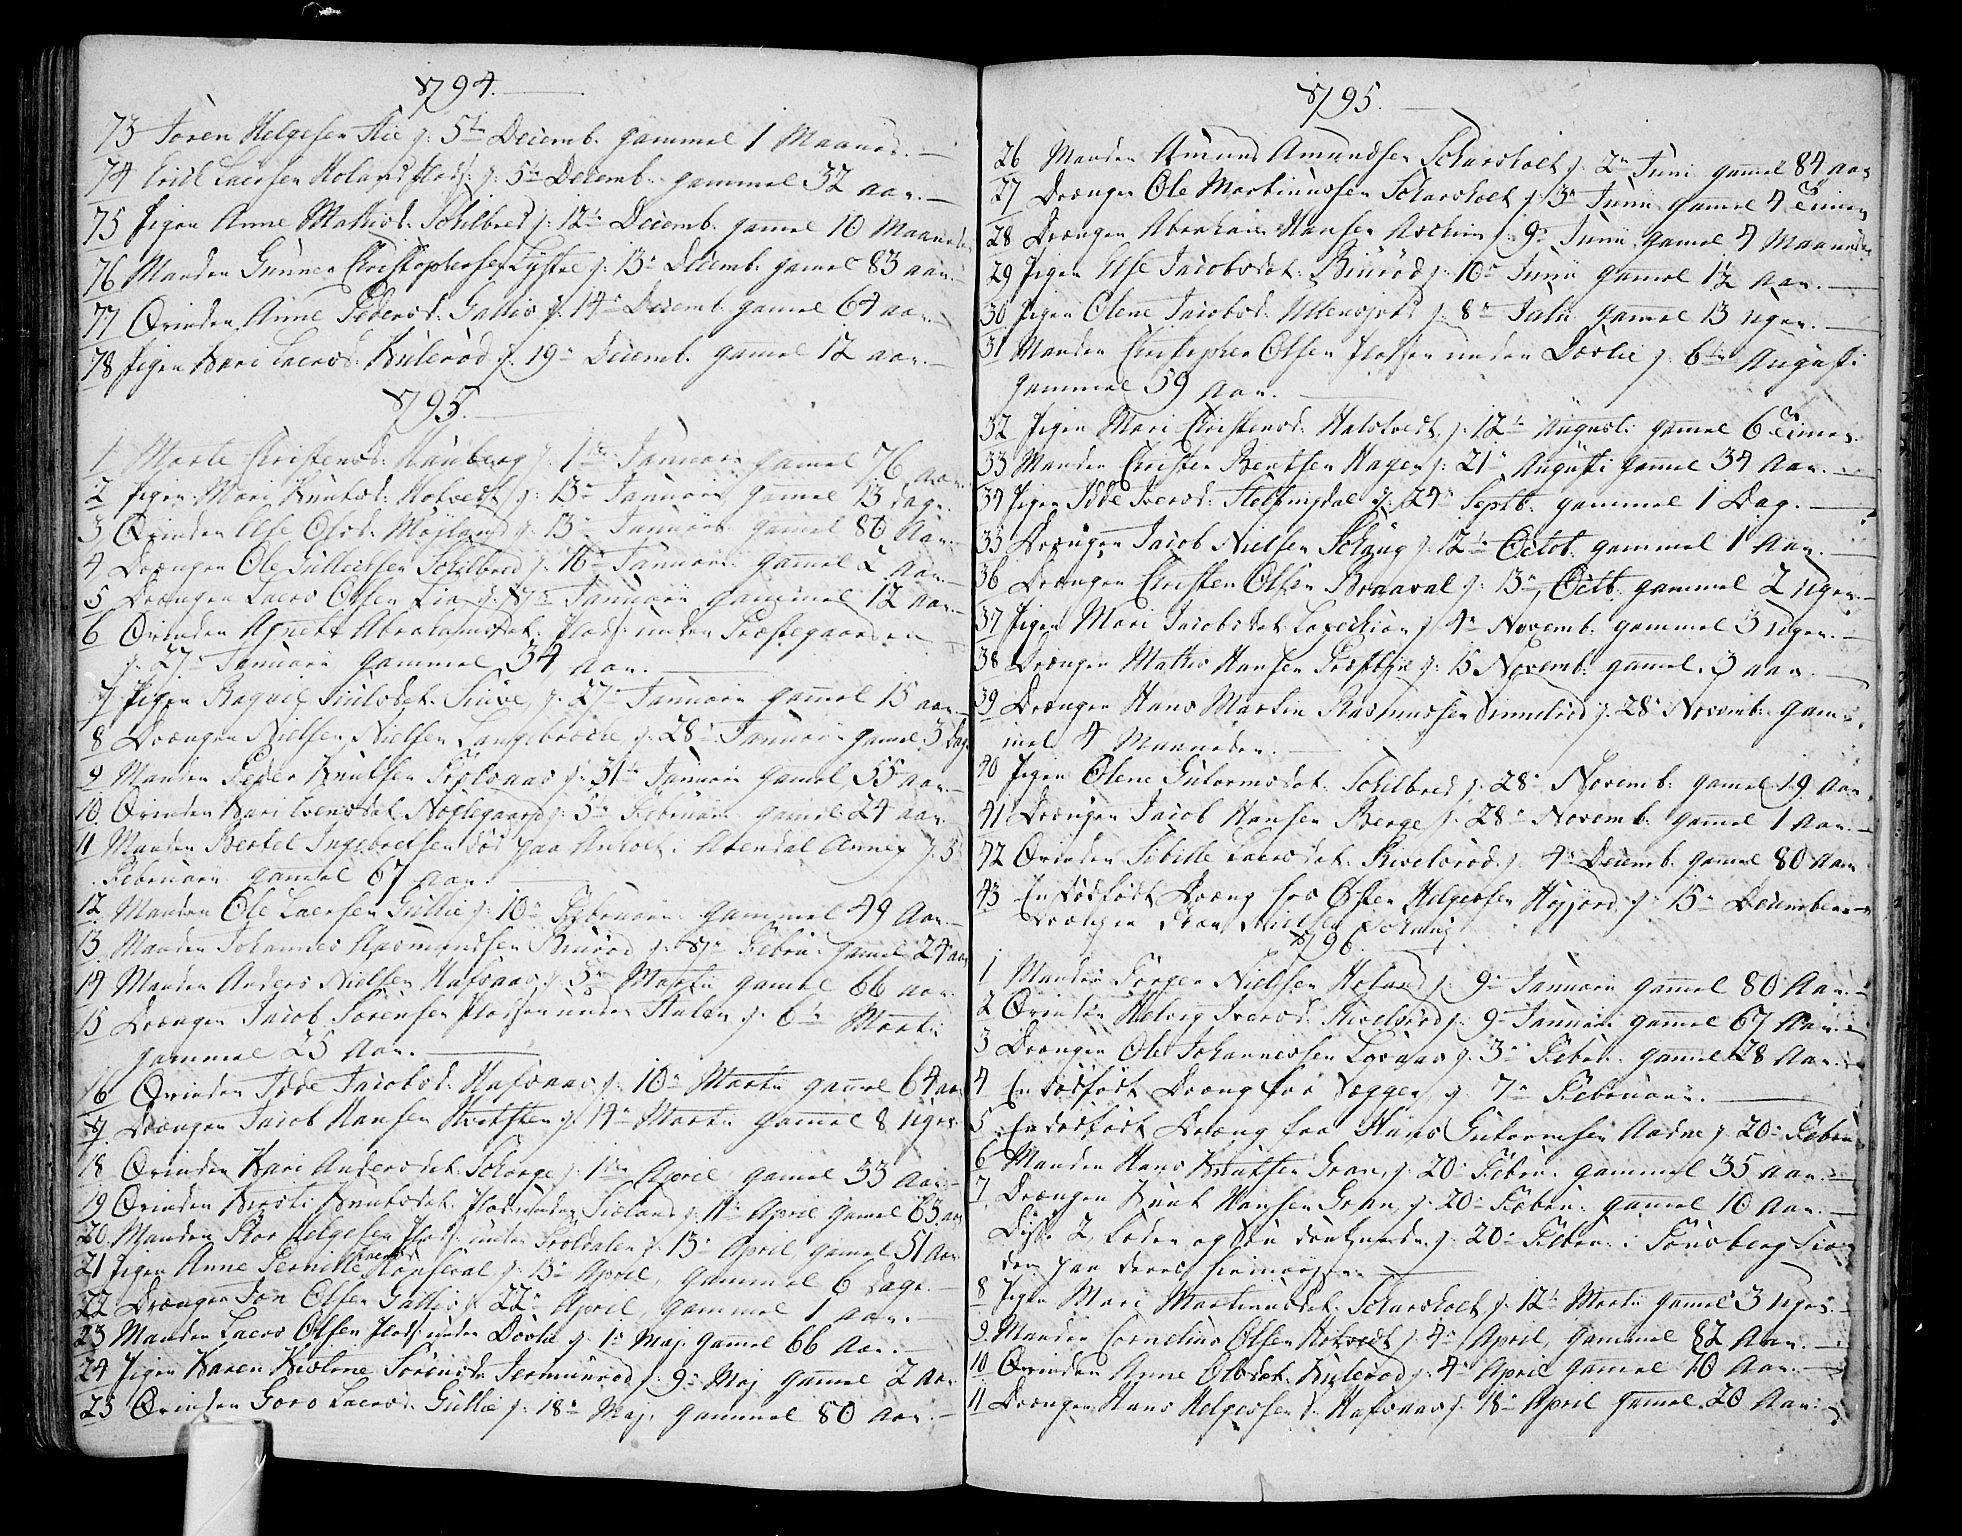 1794.
73 Søren Helgesen Lie j: 5te Decemb. gammel 1 Maaned.
74 Erich Laersen Holand Plads: j: 5te Decemb. gammel 32 aar.
75 Pigen Anne Mathisd: Schilbred j: 12te Decemb. gamel 10 Maaneder
76 Manden Gunner Christophersen j: 13de Decemb. gamel 83 aar.
77 Qvinden Anne Pedersd: Gallis j: 14de Decemb. gamel 64 aar.
78 Pigen Kari Laersd: Kulerød j: 19de Decemb. gamel 12 aar.
1795.
1 Marte Christensd: Hauberg j: 1te Januarii gamel 76 aar
2 Pigen Mari Knutsd: Hotvedt j: 13de Januarii gamel 13 dage.
3 Qvinden Else Olsd: Møyland j: 13de Januarii gamel 80 Aar.
4 Drængen Ole Gullichsen Schilbred j: 16de Januarii gamel 2 Aar.
5 Drængen Laers Olsen Lia j: 17de Januarii gammel 12 aar.
6 Qvinden Agnete Abrahamsdat: Plads: under Præstegaarden
j: 27de Januarii gammel 34 aar.
7 Pigen Ragnil j: 27de Januarii gamel 15 aar.
8 Drængen Nielsen Nielsen Langebrecke j: 28de Januarii gamel 3 Dage
9 Manden Peder Knutsen j: 31te Januarii gamel 55 aar.
10 Qvinden Kari Iversdat: Noglegaard j: 5te Februarii gamel 24 aar.
11 Manden Bertel Ingebretsen død paa i Arendal Annex j: 5
Februarii gamel 67 aar.
12 Manden Ole Laersen Gullie j: 10de Februarii gammel 49 Aar.
13 Manden Johannes Rasmundsen Biurød j: 17 Febru: gamel 24 aar
14 Manden Anders Nielsen Hafsaas j: 5te Martii gamel 66 aar.
15 Drængen Jacob Sørensen Pladsen under j: 6te Martii
gammel 25 Aar.
16 Qvinden Idde Jacobsd: Hafsaas j: 10de Martii gamel 64 aar
17 Drængen Jacob Hansen j: 14de Martii gamel 8 uger
18 Qvinden Kari Andersdat: Schorge j: 1te April gamel 33 Aar.
19 Qvinden Kirsti Knutsdat: Plads under j: 11te April gamel 63 aar
20 Manden Halvor Helgesen Plads: under j: 13de April gamel 51 Aar
21 Pigen Anne Pernille j: 13de April, gammel 6 Dage.
22 Drængen Jon Olsen Gallis j: 22de April, gammel 1 aar.
23 Manden Laers Olsen Plads: under j: 1te Maj gamel 66 Aar.
24 Pigen Karen Sørensd: j: 9de Maj gamel 2 aar
25 Qvinden Goro Laersd: Gullie j: 18de Maj, gammel 80 Aar.
1795.
26 Manden Amund Amundsen Scharsholt j: 2de Junii gamel 84 aar
27 Drængen Ole Martinussen Scharsholt j: 3de Junii gamel 4 Timer
28 Drængen Abraham Hansen Aschim j: 9de Junii gamel 4 Maaneder
29 Pigen Else Jacobsdat: Biurød j: 10de Junii gamel 12 Aar.
30 Pigen Olene Jacobsd: j: 8de Julii gamel 13 uger.
31 Manden Christopher Olsen Pladsen under j: 6te Augusti
gammel 59 Aar.
32 Pigen Mari Christensd: Hotvedt j: 12te Augusti gamel 6 Timer
33 Manden Christen Bertsen Hagen j: 21de Augusti gamel 34 Aar.
34 Pigen Idde Iversd: j: 24de Septb. gammel 1 Dag.
35 Drængen Jacob Nielsen Schaug j: 12te Octob. gammel 1 Aar.
36 Drængen Christen Olsen Braavál j: 13de Octb. gammel 2 uger.
37 Pigen Mari Jacobsdat: j: 4de Novemb. gammel 3 uger.
38 Drængen Mathis Hansen j: 15 Novemb. gamel 3 aar.
39 Drængen Hans Martin Rasmussen Unnelrød j: 28de Novemb. gam-
mel 4 Maaneder.
40 Pigen Olene Gutormsdat: Schilbred j: 28de Novemb. gamel 19 Aar
41 Drængen Jacob Hansen Berge j: 28de Novemb. gamel 1 Aar.
42 Qvinden Sibille Laersdat: j: 4de Decemb. gamel 80 Aar
43 En dødfødt Dræng fra Østen Helgesen Høyjord j: 15de December
Drængen Nielsen Schaug
1796.
1 Manden Jørgen Nielsen Holand j: 9de Januarii gammel 80 Aar.
2 Qvinden Helvig Iversd: j: 9de Januarii gamel 67 Aar.
3 Drængen Ole Johannessen j: 3de Febru: gamel 28 Aar.
4 En dødfødt Dræng fra j: 7de Februarii.
5 En dødfødt Dræng fra Hans Gutormsen Aadne j: 20de Febru
6 Manden Hans Knutsen Gran j: 20de Febru: gammel 35 aar.
7 Drængen Knut Hansen Gran j: 20de Febru: gammel 10 Aar.
Disse 2 Fader og Søn j: 20de Febru: i Tønsberg
den paa deres
8 Pigen Mari Martinusdat: Scharsholt j: 12te Martii gamel 3 uger.
9 Manden Cornelius Olsen Hotvedt j: 4de April, gammel 82 Aar.
10 Qvinden Anne Olsdat: Kulerød j: 4de April gammel 70 Aar.
11 Drængen Hans Helgessen j: Hafsaas j: 18de April gamel 20 Aar.